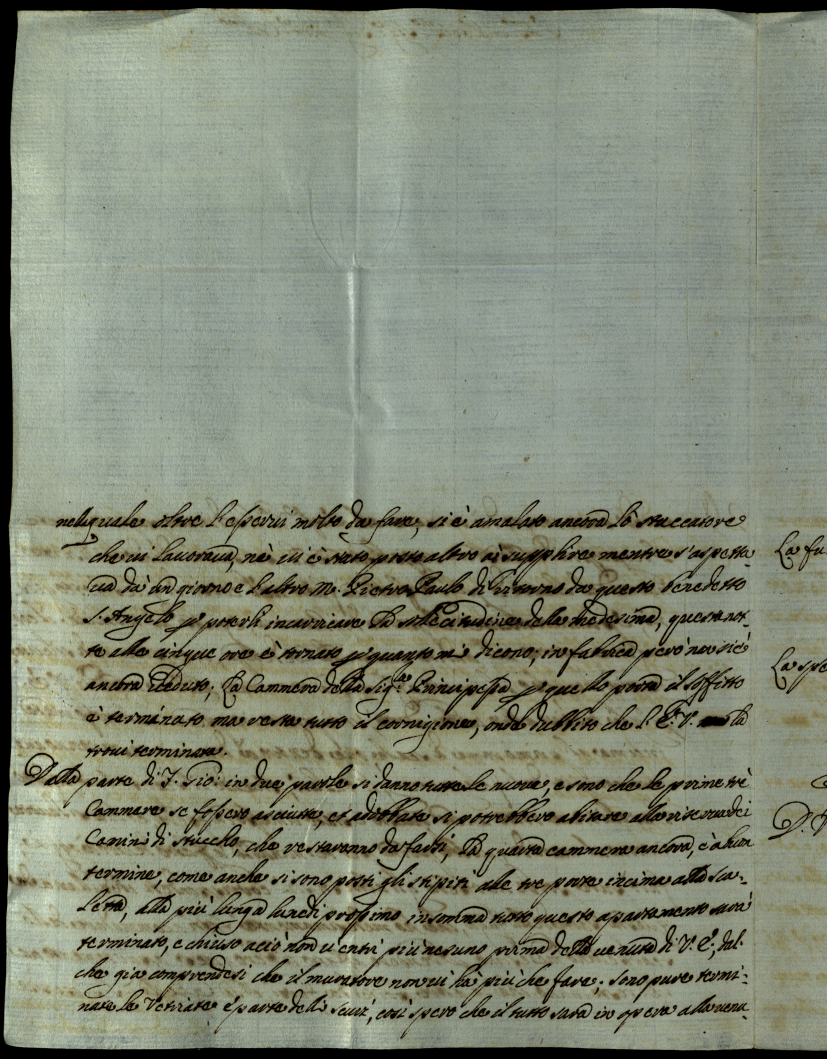 nella quale oltre l'esservi molto da fare, si è amalato ancora lo stuccatore
che vi lavorava, nè vi è stato posto altro à supplire mentre s'aspetta-
va da un giorno e l'altro M. Pietro Paulo di ritorno da questo benedetto
S. Angelo p poterli incarricare la sollecitudine della medesima, questa not-
te alle cinque ore è tornato p quanto mi dicono; in fabrica però non si è
ancora veduto; La Cammera della Sig.ra Principessa p quello porta il soffitto
è terminato ma resta tutto il cornigione, onde dubbito che l'E. V. la
trovi terminata.
Dalla parte di S. Gio: in due parole si danno tutte le nuove, e sono che le prime trè
Cammere se fossero asciutte, et adobbate si potrebbero abitare alla riserva dei
Camini di stuccho, che restaranno da farsi, la quarta cammera ancora, è à buon
termine, come anche si sono posti gli stipiti alle tre porte incima alla sca-
letta, alla più lunga lunedi prossimo insomma tutto questo apartamento sarà
terminato, e chiuso acciò non v'entri più nesuno prima della venuta di V. E., dal
che già comprendesi che il muratore non vi hà più che fare; sono pure termi-
nate le Vetriate e parte delli scuri, così spero che il tutto sarà in opera alla venu-
La fu
La spe
D. V